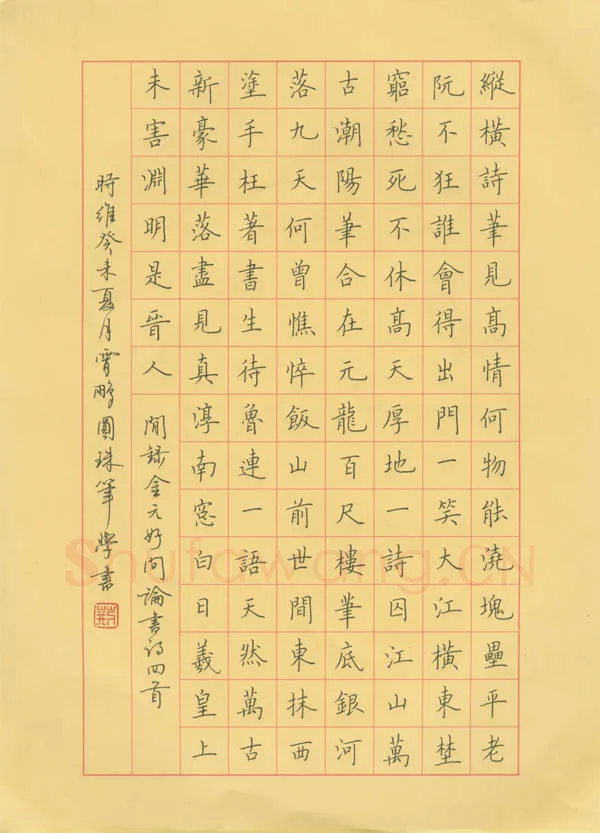 縱橫詩筆見高情何物能澆塊壘平老
阮不狂誰會得出門一笑大江橫東埜
窮愁死不休高天厚地一詩囚江山萬
古潮陽筆合在元龍百尺樓筆底銀河
落九天何曾憔悴飯山前世間東抹西
塗手枉著書生待魯連一語天然萬古
新豪華落盡見真淳南窓白日羲皇上
未害淵明是晉人 閒録金元好问論書诗四首
時維癸未夏月霄鵬圓珠筆學書
Shufawang.CN